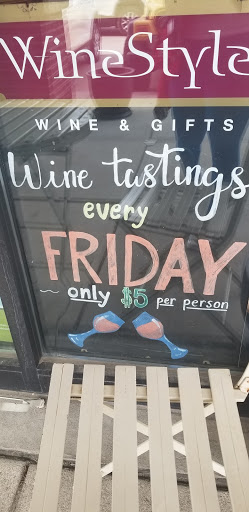 WineStyle
WINE & GIFTS
Wine tastings
every
FRIDAY
~ only $5 per person